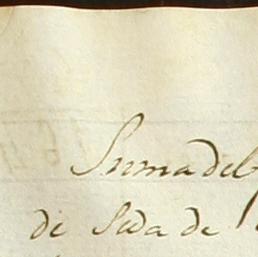 Suma del
de Seda de